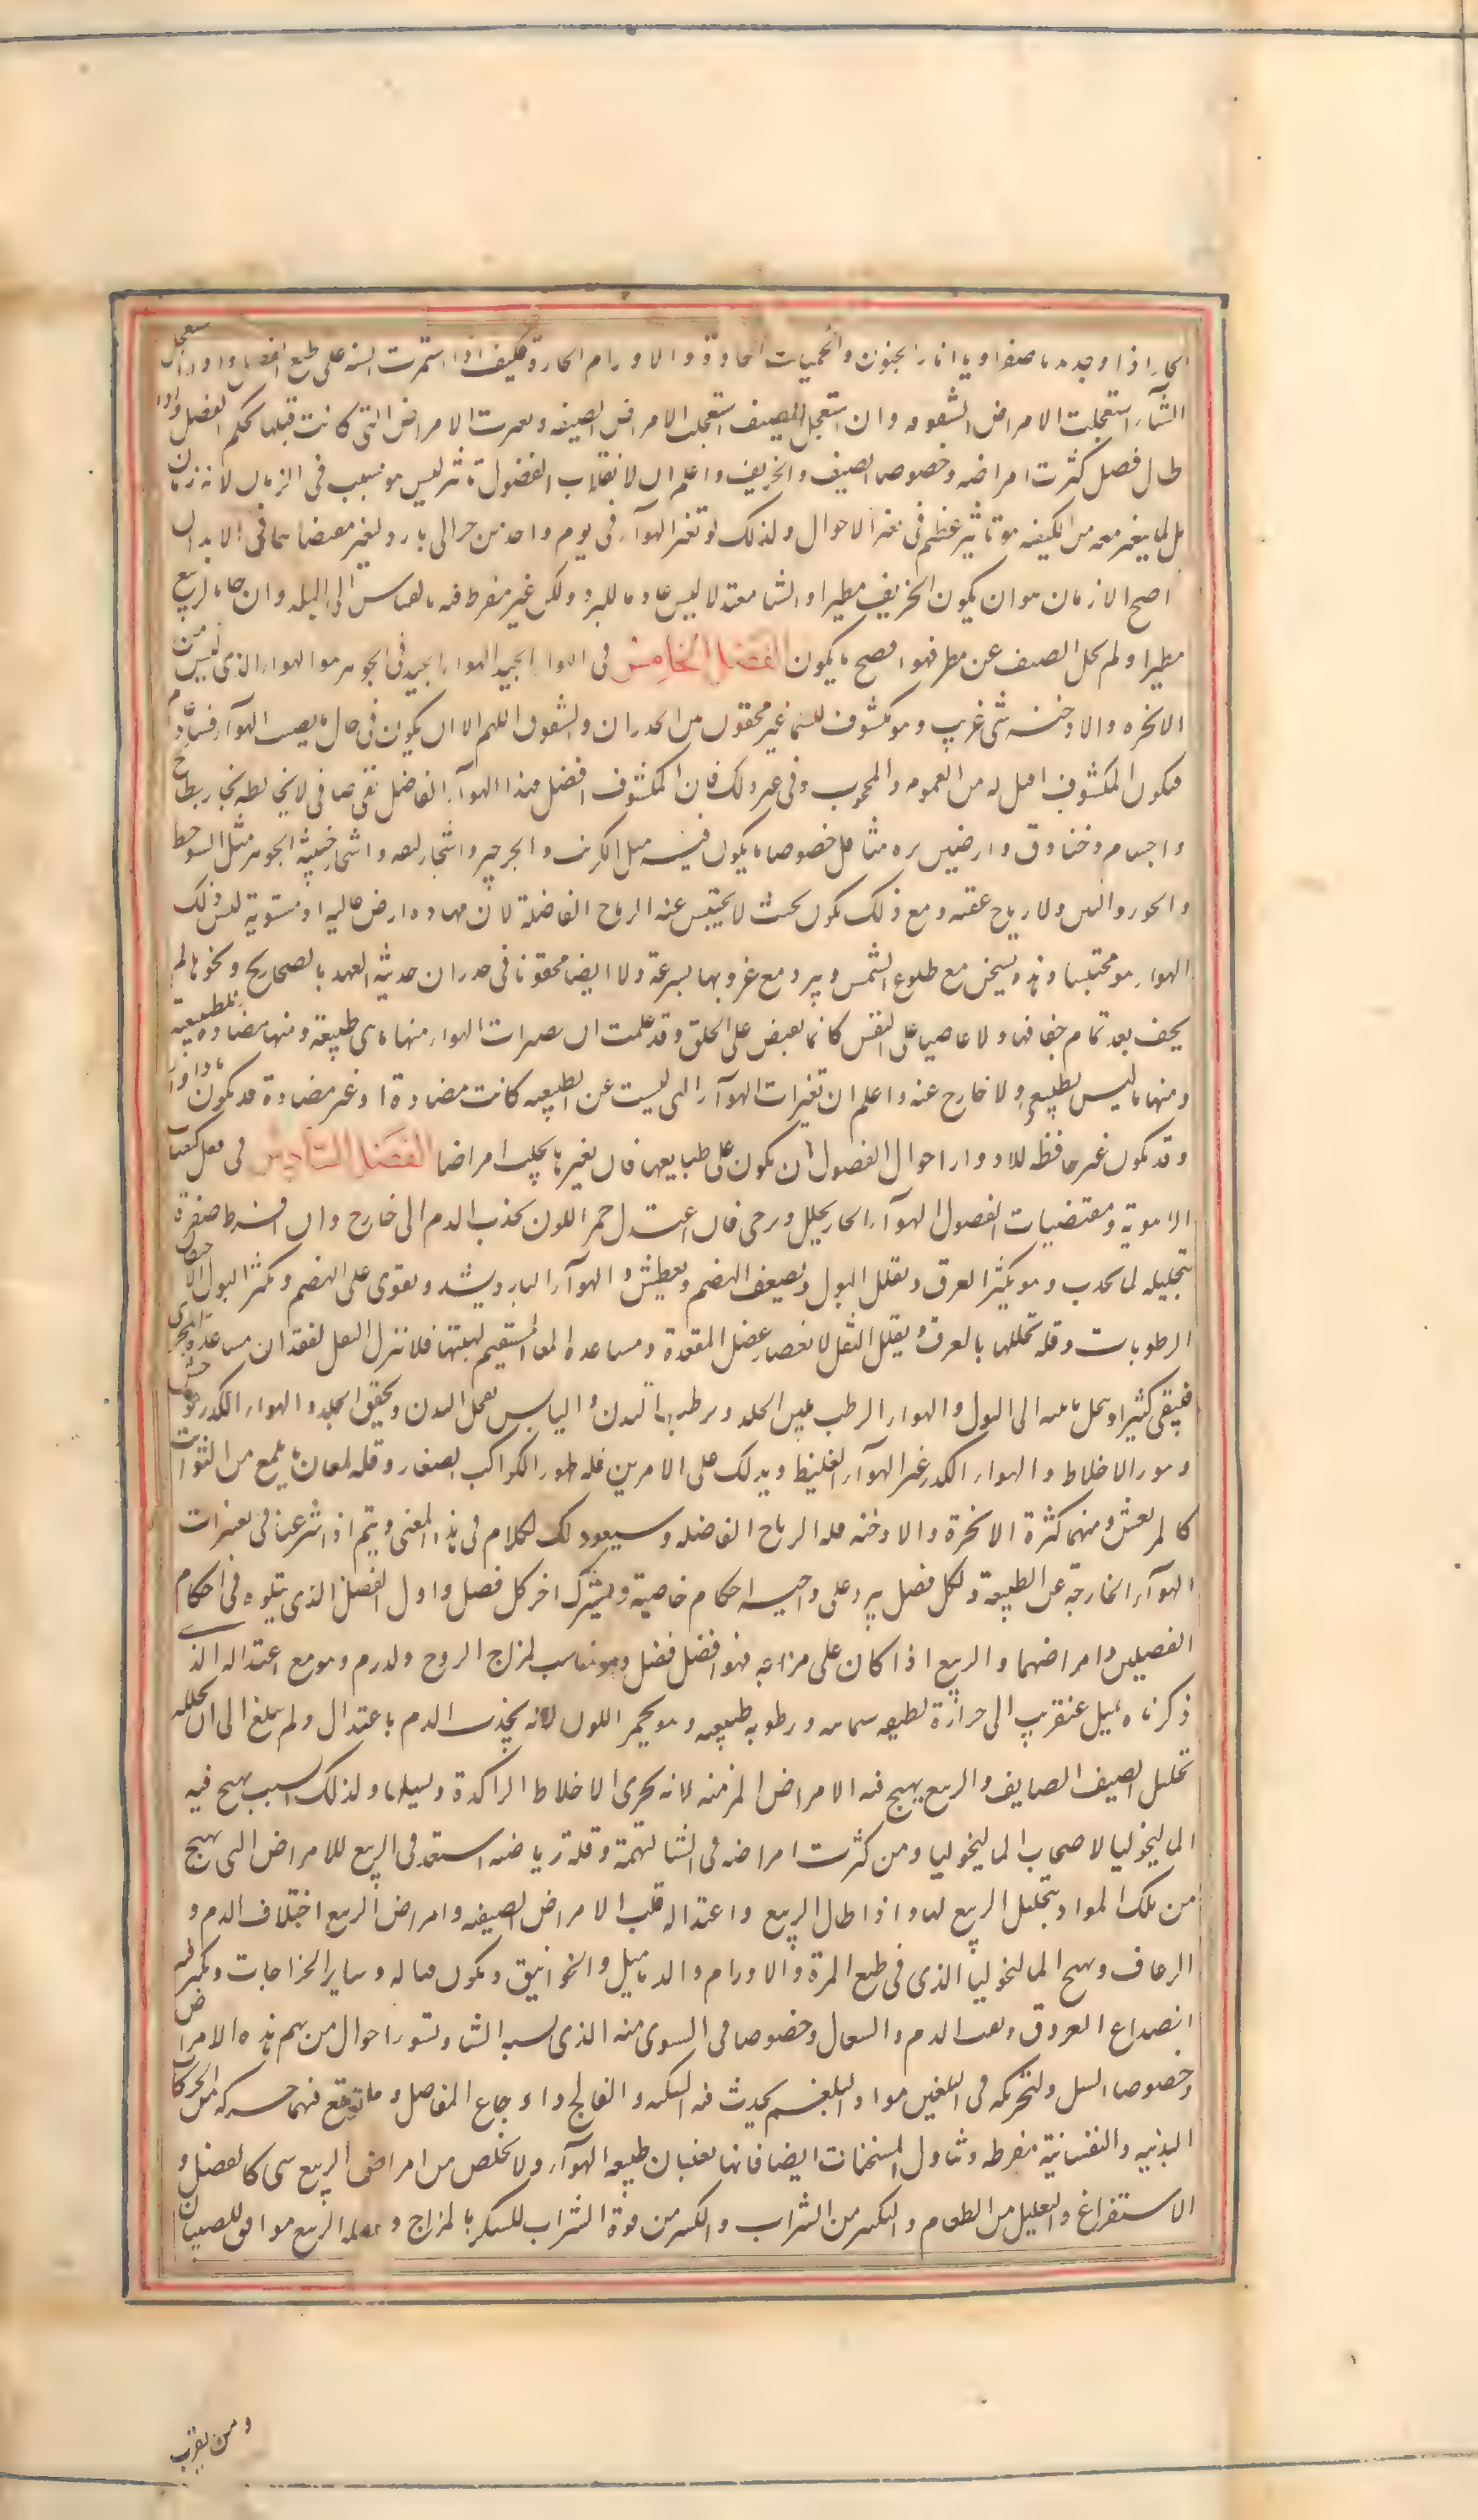 الحار اذا وجده ما صفراويا انار الجنون والحميات الحادة والاورام الحارة فكيف اذا استمرت السنه على طبع الفصل واذا استعجل
الشتاء استعجلت الامراض الشتويه وان استعجل الصيف استعجلت الامراض الصيفيه وتغيرت الامراض التى كانت قبلها بحكم الفصل واذا
طال فصل كثرت امراضه وخصوصا الصيف والخريف واعلم ان لانقلاب الفصول تاثير ليس هو بسبب فى الزمان لانه زمان
بل لما يتغير معه من الكيفيه هو تاثير عظيم فى تغير الاحوال ولذلك لو تغير الهوآء فى يوم واحد من حر الى بارد لتغير مقتضاهما فى الابدان
اصح الازمان هو ان يكون الخريف مطيرا والشتا معتدلا ليس عادما للبرد ولكن غير مفرط فيه بالقياس الى البلد وان جاء الربيع
مطيرا ولم يخل الصيف عن مطر فهو اصح ما يكون الفصل الخامس فى الهواء الجيد الهواء الجيد فى الجوهر هو الهواء الذى ليس من
الابخره والادخنه شى غريب وهو مكشوف للسما غير محقون من الجدران والسقوف اللهم الا ان يكون فى حال ما يصيب الهوآء فساد عام
فيكون المكشوف اقبل له من المغموم والمحجوب وفى غير ذلك فان المكشوف افضل فهذا الهوآء الفاضل نقى صاف لا يخالطه بخار بطائح
واجسام وخنادق وارضين نزه مثاقل خصوصا ما يكون فيه مثل الكرنب والجرجير واشجار ملتفه واشجار خبيثه الجوهر مثل الشوحط
والجوز والتين ولا رياح عفنه ومع ذلك يكون بحيث لا يحتبس عنه الرياح الفاضلة لان مهابه ارض عاليه او مستوية فليس ذلك
الهواء هو محتبسا وهذه يسخن مع طلوع الشمس ويبرد مع غروبها بسرعة ولا ايضا محقونا فى جدران حديثه العهد بالصهاريج ونحوها لم
يجف بعد تمام جفافها ولا عاصيا على النفس كانما يقبض على الحلق وقد علمت ان تغيرات الهواء منها ما هى طبيعية ومنها مضادة للطبيعيه
ومنها ما ليس بطبيعى ولا خارج عنه واعلم ان تغيرات الهوآء التى ليست عن الطبيعه كانت مضادة او غير مضادة قد تكون بادوار
وقد تكون غير حافظه للادوار احوال الفصول ان تكون على طبايعها فان تغيرها يجلب امراضا الفصل السادس فى فعل كيفيات
الاهويه ومقتضيات الفصول الهوآء الحار يحلل ويرخى فان اعتدل حمر اللون بجذب الدم الى خارج وان افرط صفره
بتحليله لما يجذب وهو يكثر العرق ويقلل البول ويضعف الهضم ويعطش والهوآء البارد يشد ويقوى على الهضم ويكثر البول لاحتقان
الرطوبات وقله تحللها بالعرق ويقلل الثفل لانعصار عضل المقعدة ومساعده المعا المستقيم لهيئتها فلا ينزل الثفل لفقدان مساعده المجرى
فيبقى كثيرا وتحلل مائيته الى البول والهواء الرطب يلين الجلد ويرطب البدن واليابس يقحل البدن ويجفف الجلد والهواء الكدر يوحش
ويثور الاخلاط والهواء الكدر غير الهوآء الغليظ ويدلك على الامرين قله ظهور الكواكب الصغار وقله لمعان ما يلمع من الثوابت
كالمرتعش ومنهما كثرة الابخرة والادخنه قله الرياح الفاضله وسيعود لك الكلام فى هذا المعنى ويتم اذا شرعنا فى تغيرات
الهوآء الخارجة عن الطبيعة ولكل فصل يرد على واجبه احكام خاصية ويشترك اخر كل فصل واول الفصل الذى يتلوه فى احكام
الفصلين وامراضهما والربيع اذا كان على مزاجه فهو افضل فصل وهو مناسب لمزاج الروح والدم وهو مع اعتداله الذى
ذكرناه يميل عن قريب الى حرارة لطيفه سمائيه ورطوبه طبيعيه وهو يحمر اللون لانه يجذب الدم باعتدال ولم يبلغ الى ان يحلله
تحليل الصيف الصايف والربيع يهيج فيه الامراض المزمنه لانه يجرى الاخلاط الراكدة ويسيلها ولذلك السبب يهيج فيه
الماليخوليا لاصحاب الماليخوليا ومن كثرت امراضه فى الشتا لنهمه وقلة رياضته استعد فى الربيع للامراض التى تهيج
من تلك المواد بتحليل الربيع لها واذا طال الربيع واعتداله قلت الامراض الصيفيه وامراض الربيع اختلاف الدم و
الرعاف وتهيج الماليخوليا الذى فى طبع المرة والاورام والدماميل والخوانيق وتكون قتاله وساير الخراجات ويكثر فيه
انصداع العروق ونفث الدم والسعال وخصوصا فى الشتوى منه الذى يشبه الشتا ويسوء احوال من بهم هذه الامراض
وخصوصا السل ولتحريكه فى البلغمين مواد البلغم يحدث فيه السكته والفالج واوجاع المفاصل وما يوقع فيها حركه من الحركات
البدنيه والنفسانية مفرطه وتناول المسخنات ايضا فانها تعينان طبيعه الهوآء ولا يخلص من امراض الربيع شى كالفصد و
الاستفراغ والتقليل من الطعام والتكثير من الشراب والكسر من قوة الشراب المسكر بالمزاج و الربيع موافق للصبيان
ومن يقرب